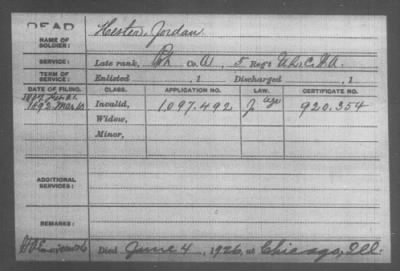 DEAD
NAME OF SOLDIER: Hester, Jordan
SERVICE: Late rank, Co. A, 5 Reg't U.S.C.H.A.
TERM OF SERVICE: Enlisted , 1 Discharged , 1
DATE OF FILING. CLASS. APPLICATION NO. LAW. CERTIFICATE NO.
1892 Mar Invalid, 1,097,492 age 920,354
Widow,
Minor,
ADDITIONAL SERVICES:
REMARKS:
Died June 4, 1926, at Chicago, Ill.